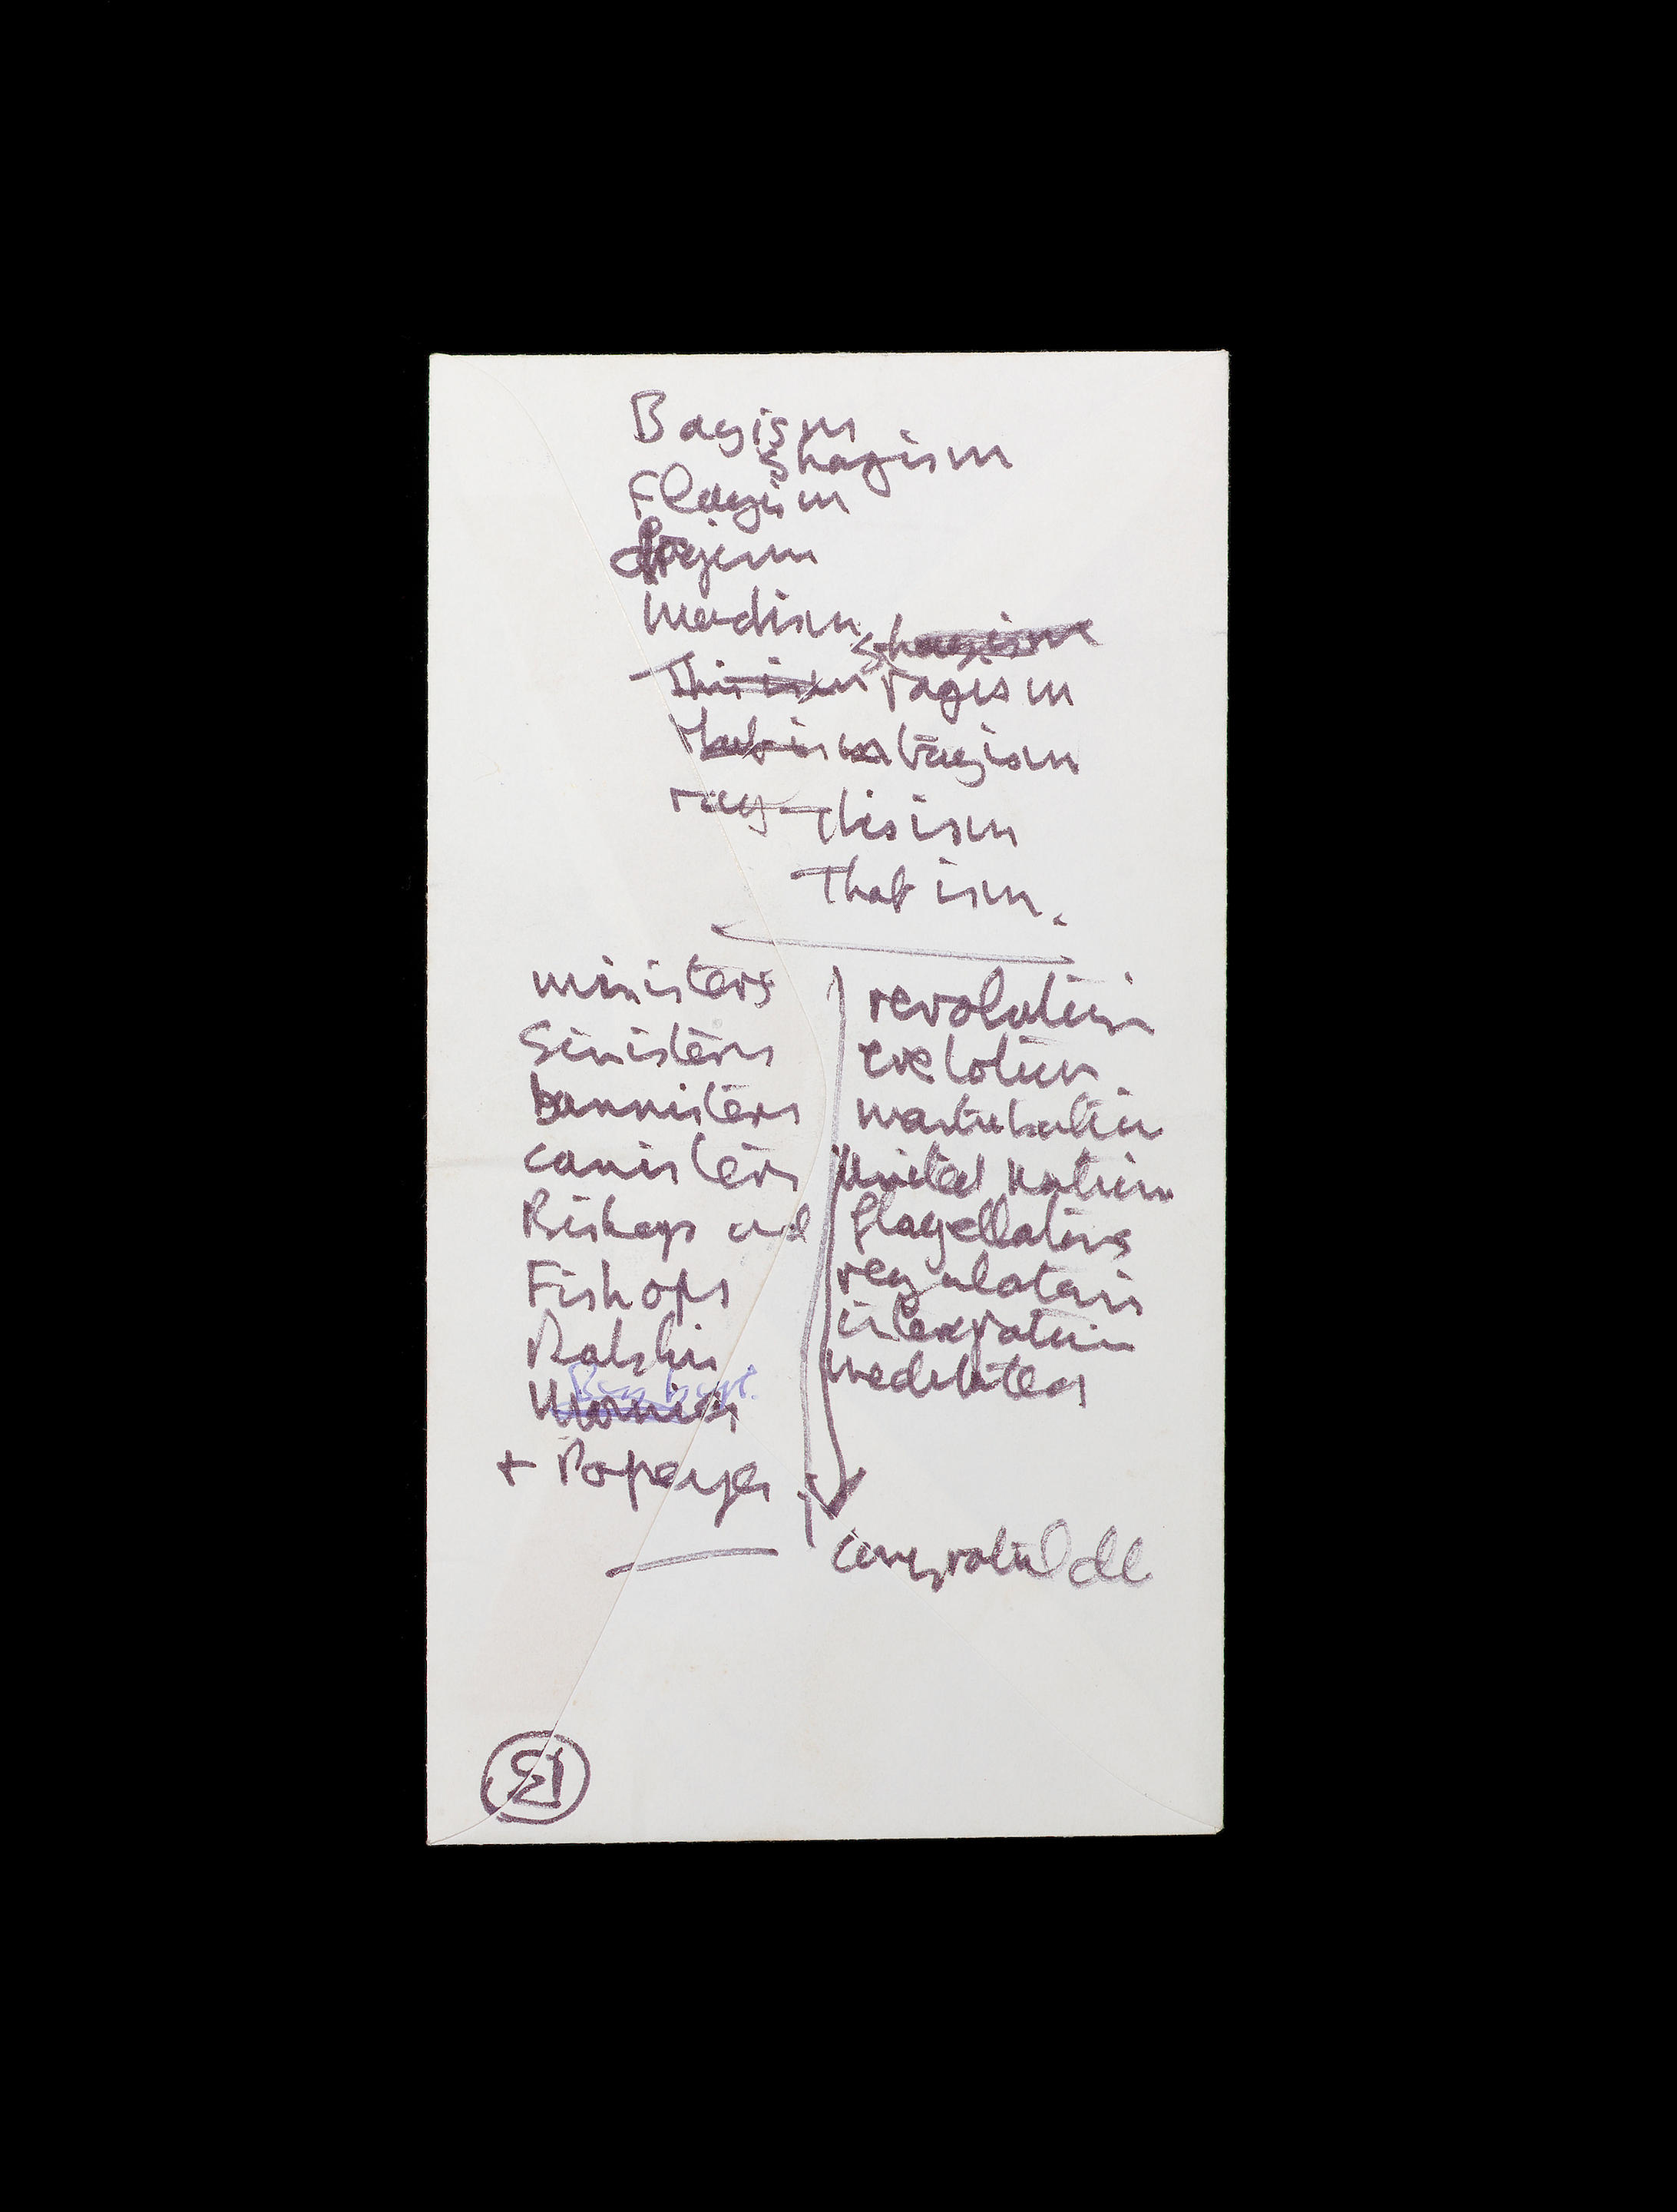 Bagism
Shagism
Flagism
Madism
Shagism
Thisism ragism
Thatism tagism
rag Thisism
That ism.
ministers
Sinisters
bannisters
canisters
Bishops and
Fishops
Rabbis
+ Popeyes
revolution
evolution
masturbation
United Nations
flagellations
regulations
integrations
meditations
congratul